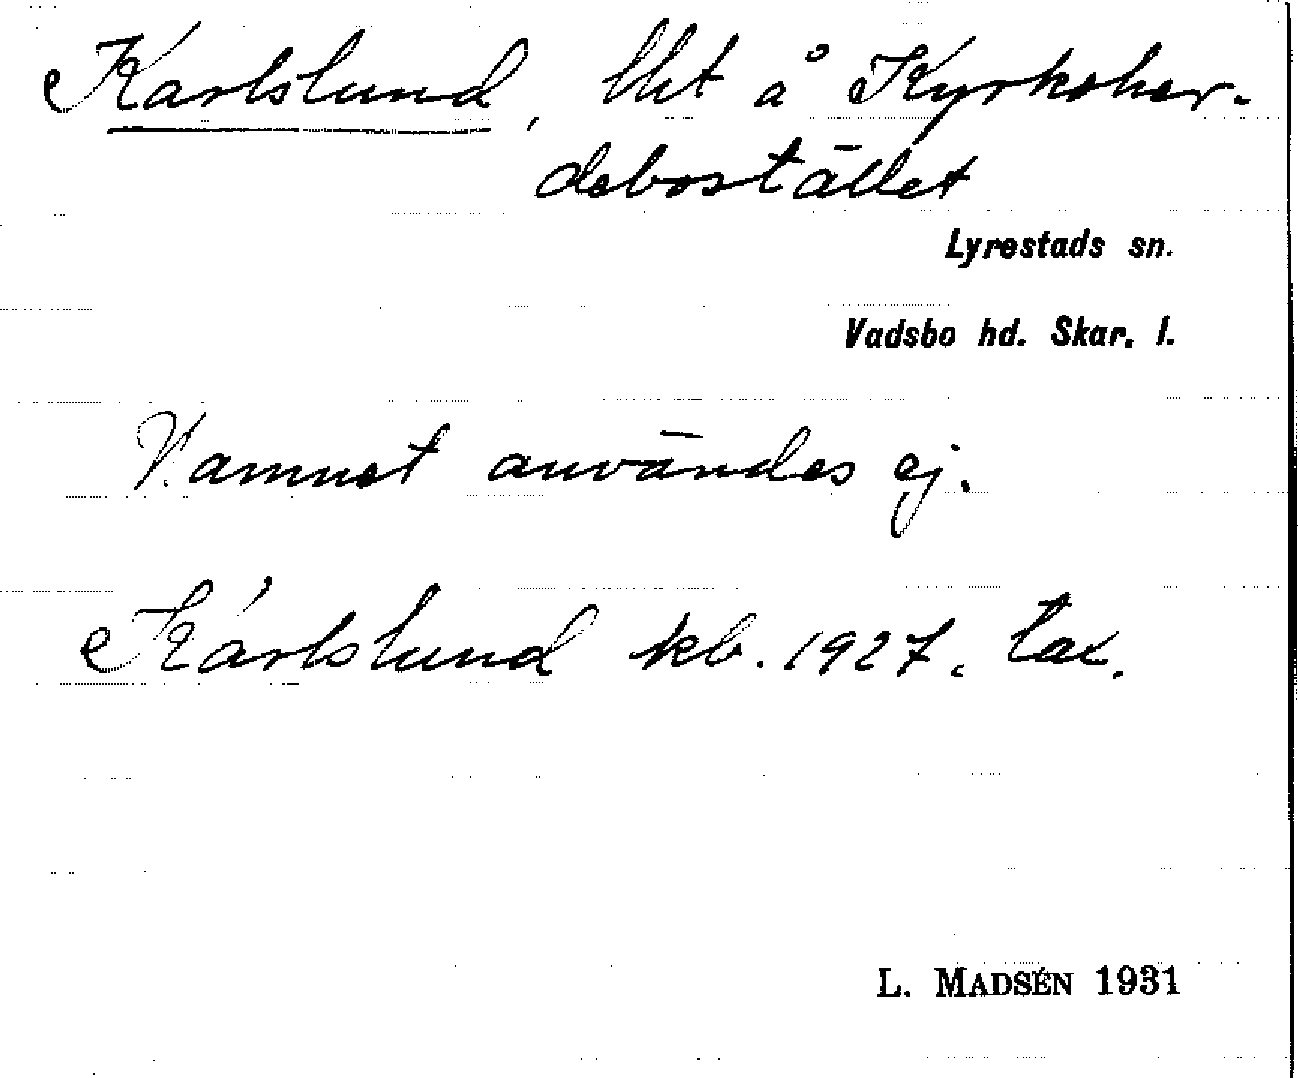 Karlslund, lht å Kyrkoher-
debostället
Lyrestads sn.
Vadsbo hd. Skar. l.
Namnet användes ej.
Karlslund kb. 1927. tax.
L. MADSÉN 1931